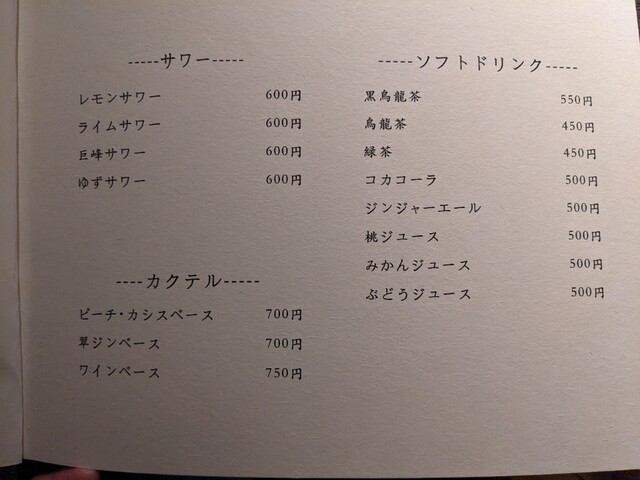 -----サワー-----
レモンサワー 600円
ライムサワー 600円
巨峰サワー 600円
ゆずサワー 600円
----カクテル-----
ピーチ・カシスベース 700円
翠ジンベース 700円
ワインベース 750円
-----ソフトドリンク-----
黒烏龍茶 550円
烏龍茶 450円
緑茶 450円
コカコーラ 500円
ジンジャーエール 500円
桃ジュース 500円
みかんジュース 500円
ぶどうジュース 500円